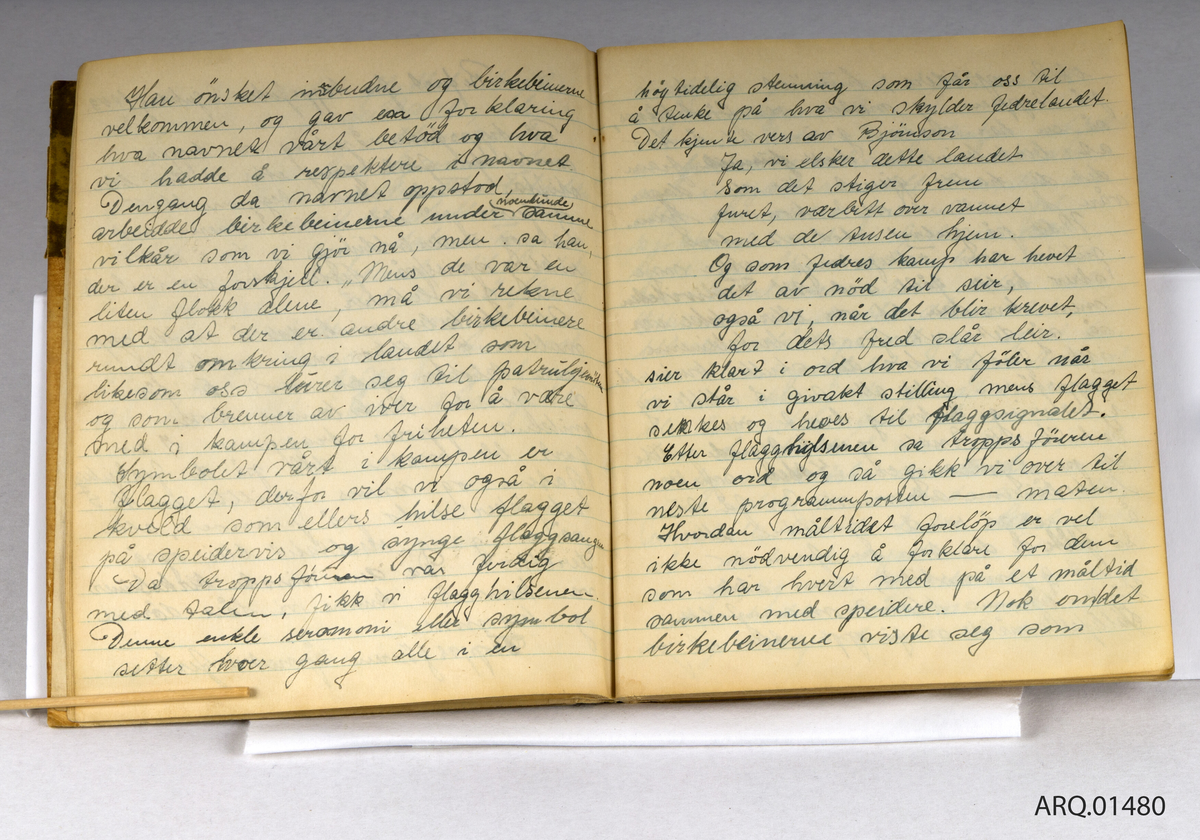 Han önsket innbudne og birkebeinerne
velkommen, og gav en forklaring
hva navnet vårt betöd og hva
vi hadde å respektere i navnet.
Dengang da navnet oppstod,
arbeidde birkebeinerne under noenlunde samme
vilkår som vi gjör nå, men. sa han,
der er en forskjell. „Mens de var en
liten flokk alene, må vi rekne
med at der er andre birkebeinere
rundt omkring i landet som
likesom oss lurer seg til patruljemöten
og som brenner av iver for å være
med i kampen for friheten.
Symbolet vårt i kampen er
flagget, derfor vil vi også i
kveld som ellers hilse flagget
på speidervis og synge flaggsangen
Da troppsföreren var ferdig
med talen, fikk vi flagghilsenen
Denne enkle seremoni eller symbol
setter hver gang alle i en
höytidelig stemning som får oss til
å tenke på hva vi skylder fedrelandet.
Det kjente vers av Björnson
Ja, vi elsker dette landet
som det stiger frem
furet, værbitt over vannet
med de tusen hjem.
Og som fedres kamp har hevet
det av nöd til seir,
også vi, når det blir krevet,
for dets fred slår leir.
sier klart i ord hva vi föler når
vi står i givakt stilling mens flagget
senkes og heves til flaggsignalet.
Etter flagghilsenen sa troppsföreren
noen ord og så gikk vi over til
neste programmposten — maten.
Hvordan måltidet forelöp er vel
ikke nödvendig å forklare for dem
som har hvert med på et måltid
sammen med speidere. Nok om det
birkebeinerne viste seg som
ARQ.01480